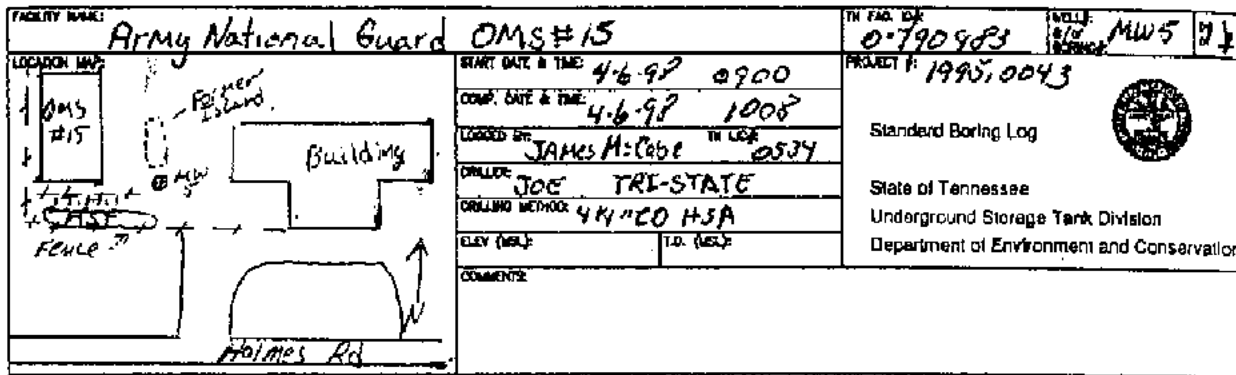 FACILITY NAME: Army National Guard OMS #15
TN FAC. ID#: 0-790983
WELL# &/or BORING#: MW5
LOCATION MAP:
OMS #15
Former Island
Building
MW 5
Fence
N
Holmes Rd
START DATE & TIME: 4-6-98 0900
COMP. DATE & TIME: 4-6-98 1008
LOGGED BY: JAMES McCabe TN LIC#: 0534
DRILLER: JOE TRI-STATE
DRILLING METHOD: 4 1/4" CO HSA
ELEV (MSL):
T.D. (MSL):
COMMENTS:
PROJECT #: 1995.0043
Standard Boring Log
State of Tennessee
Underground Storage Tank Division
Department of Environment and Conservation